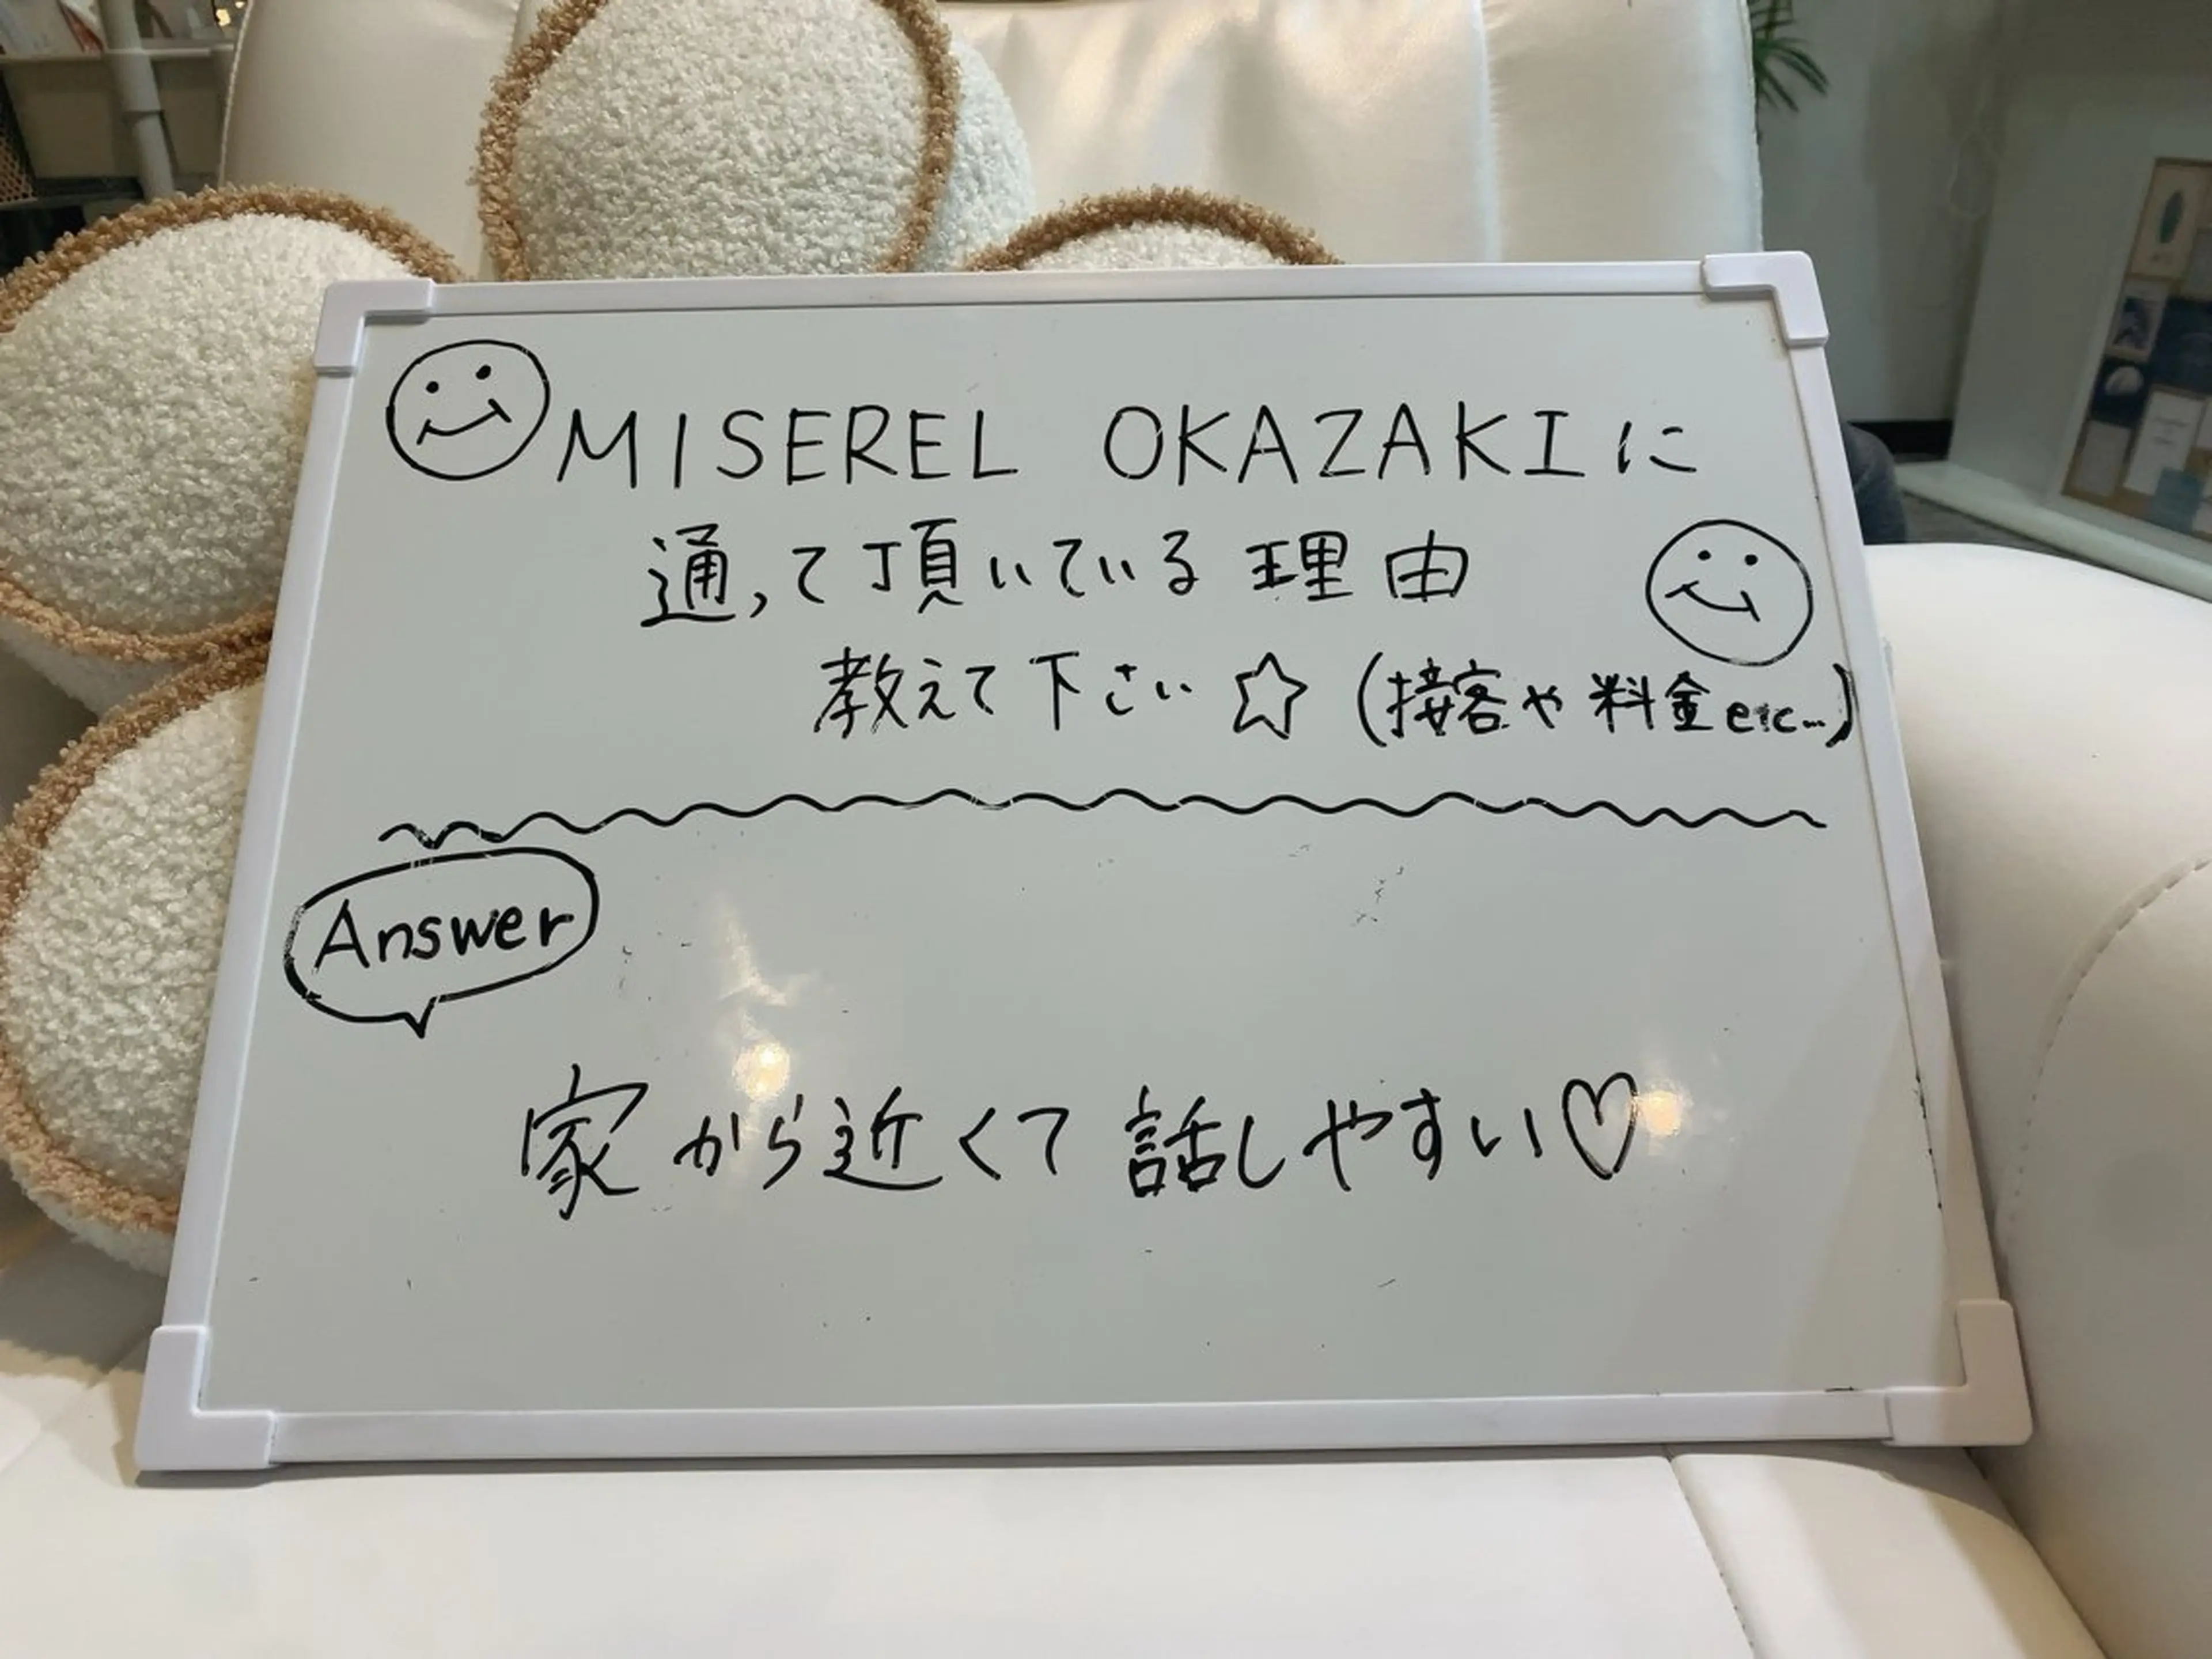 MISEREL OKAZAKIに
通って頂いている理由
教えて下さい☆(接客や料金etc...)
Answer
家から近くて話しやすい♡